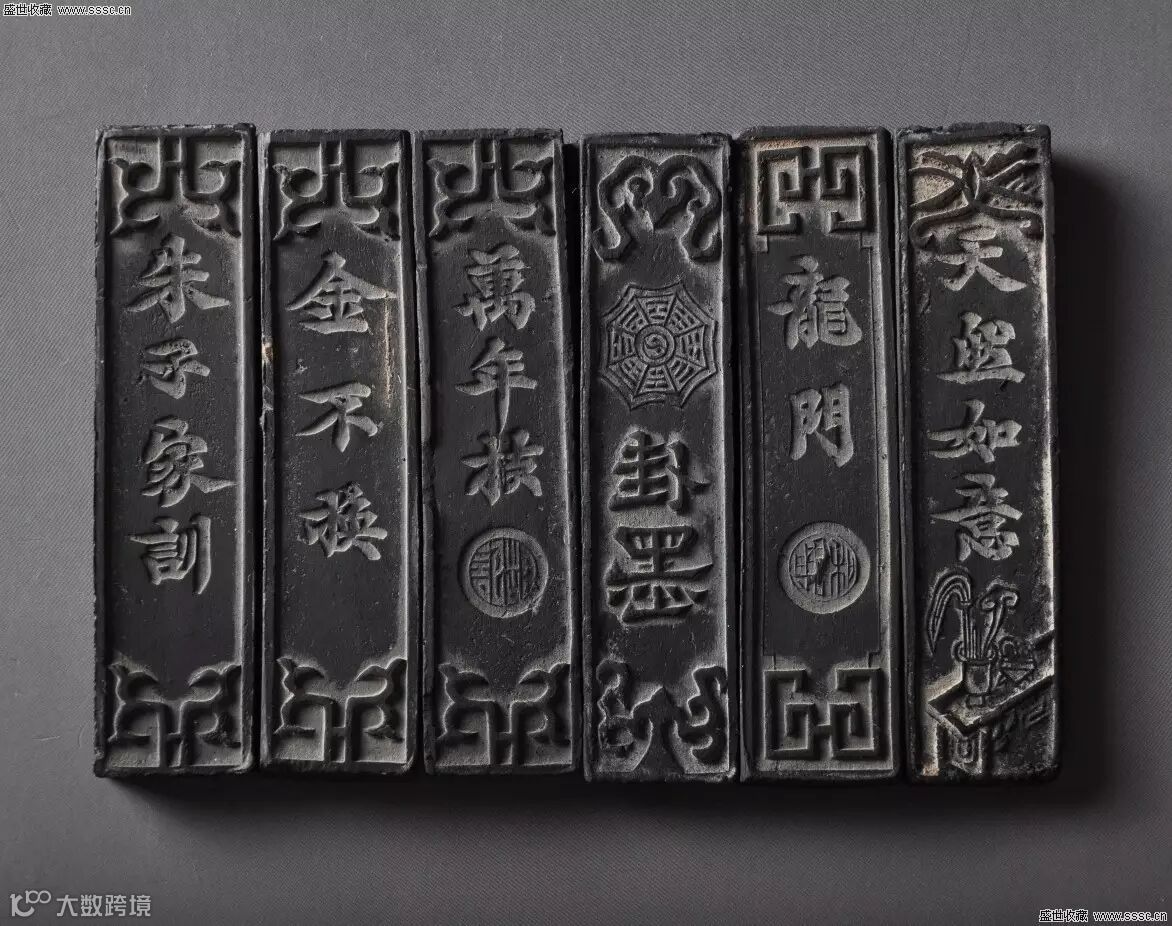 盛世收藏 www.sssc.cn
朱子家訓
金不換
萬年枝
卦墨
龍門
天然如意
大数跨境
盛世收藏 www.sssc.cn